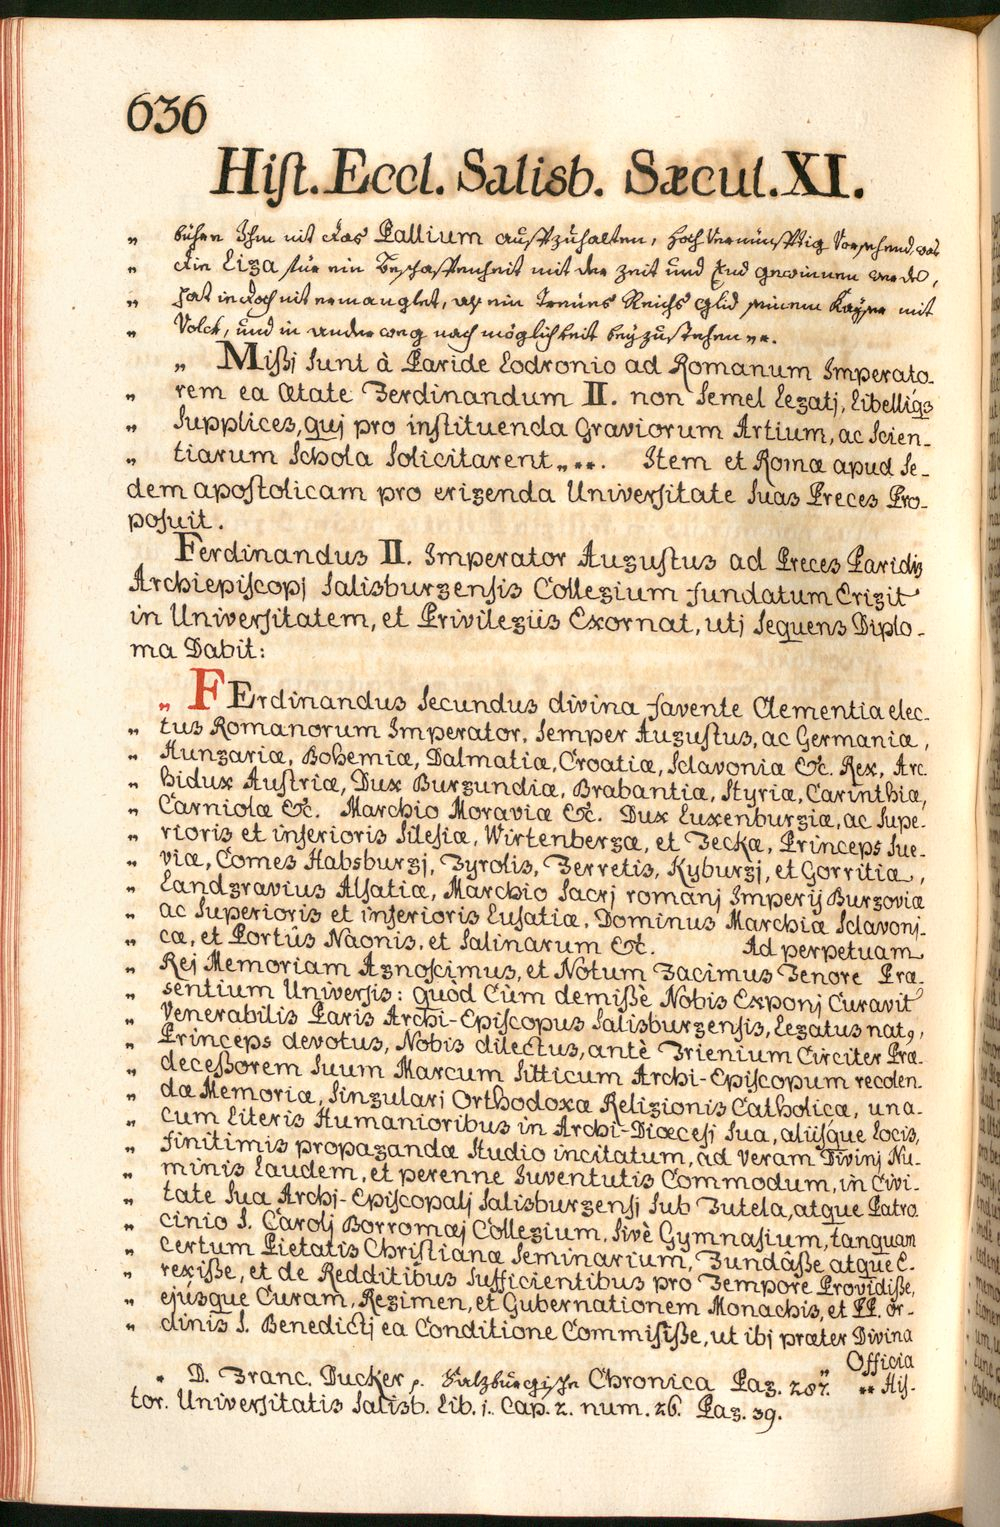 636
Hist. Eccl. Salisb. Sæcul. XI.
„ bühre Ihm nit das Pallium auffzuhalten, hoch Vernünfftig Vorsehend, was
„ die Liga für ein Beschaffenheit mit der zeit und End gewinnen werde,
„ hat iedoch nit ermanglet, als ein Treues Reichs glid seinem Kayser mit
„ Volck, und in ander weg nach möglichkeit beyzustehen „*.
„ Mißi sunt à Paride Lodronio ad Romanum Imperato-
„ rem ea ætate Ferdinandum II. non semel Legatj, Libelliqs
„ supplices, quj pro instituenda Graviorum Artium, ac scien-
„ tiarum schola solicitarent „**. Item et Romæ apud se-
dem apostolicam pro erigenda Universitate suas Preces Pro-
posuit.
Ferdinandus II. Imperator Augustus ad Preces Paridis
Archiepiscopj salisburgensis Collegium fundatum Erigit
in Universitatem, et Privilegiis Exornat, utj sequens Diplo-
ma Dabit:
„ FErdinandus secundus divina favente Clementia elec-
„ tus Romanorum Imperator, semper Augustus, ac Germaniæ,
„ Hungariæ, Bohemiæ, Dalmatiæ, Croatiæ, Sclavoniæ &c. Rex, Arc-
„ hidux Austriæ, Dux Burgundiæ, Brabantiæ, Styriæ, Carinthiæ,
„ Carniolæ &c. Marchio Moraviæ &c. Dux Luxenburgiæ, ac supe-
„ rioris et inferioris silesiæ, Wirtenbergæ, et Teckæ, Princeps sue-
„ viæ, Comes Habsburgj, Tyrolis, Ferretis, Kyburgj, et Gorritiæ,
„ Landgravius Alsatiæ, Marchio sacrj romanj Imperij Burgoviæ
„ ac superioris et inferioris Lusatiæ, Dominus Marchiæ Sclavonj-
„ cæ, et Portûs Naonis, et salinarum &c. Ad perpetuam
„ Rej Memoriam Agnoscimus, et Notum Facimus Tenore Præ-
„ sentium Universis: quòd Cùm demißè Nobis Exponj Curavit
„ Venerabilis Paris Archi-Episcopus salisburgensis, Legatus nat9,
„ Princeps devotus, Nobis dilectus, antè Trienium Circiter Præ-
„ deceßorem suum Marcum sitticum Archi-Episcopum recolen-
„ dæ Memoriæ, singularj Orthodoxæ Religionis Catholicæ, una-
„ cum Literis Humanioribus in Archi-Diœcesi sua, aliisque Locis,
„ finitimis propagandæ studio incitatum, ad veram Divinj Nu-
„ minis Laudem, et perenne Iuventutis Commodum, in Civi-
„ tate sua Archj-Episcopalj salisburgensj sub Tutela, atque Patro-
„ cinio s. Carolj Borromæj Collegium, sivè Gymnasium, tanquam
„ certum Pietatis Christianæ seminarium, Fundâße atque E-
„ rexiße, et de Redditibus sufficientibus pro Tempore Providiße,
„ ejusque Curam, Regimen, et Gubernationem Monachis, et PP. or-
„ dinis s. Benedictj ea Conditione Commisiße, ut ibj præter Divina
Officia
* D. Franc. Ducker, Saltzburgische Chronica Pag. 287. ** His-
tor. Universitatis salisb. Lib. j. Cap. 2. num. 26. Pag. 39.